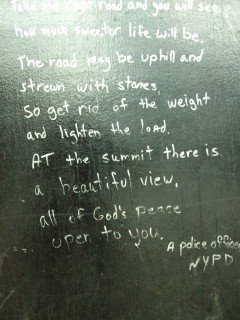 Take the right road and you will see
How much sweeter life will be.
The road may be uphill and
strewn with stones,
So get rid of the weight
and lighten the load.
AT the summit there is
a beautiful view,
all of God's peace
open to you.
A police officer
NYPD